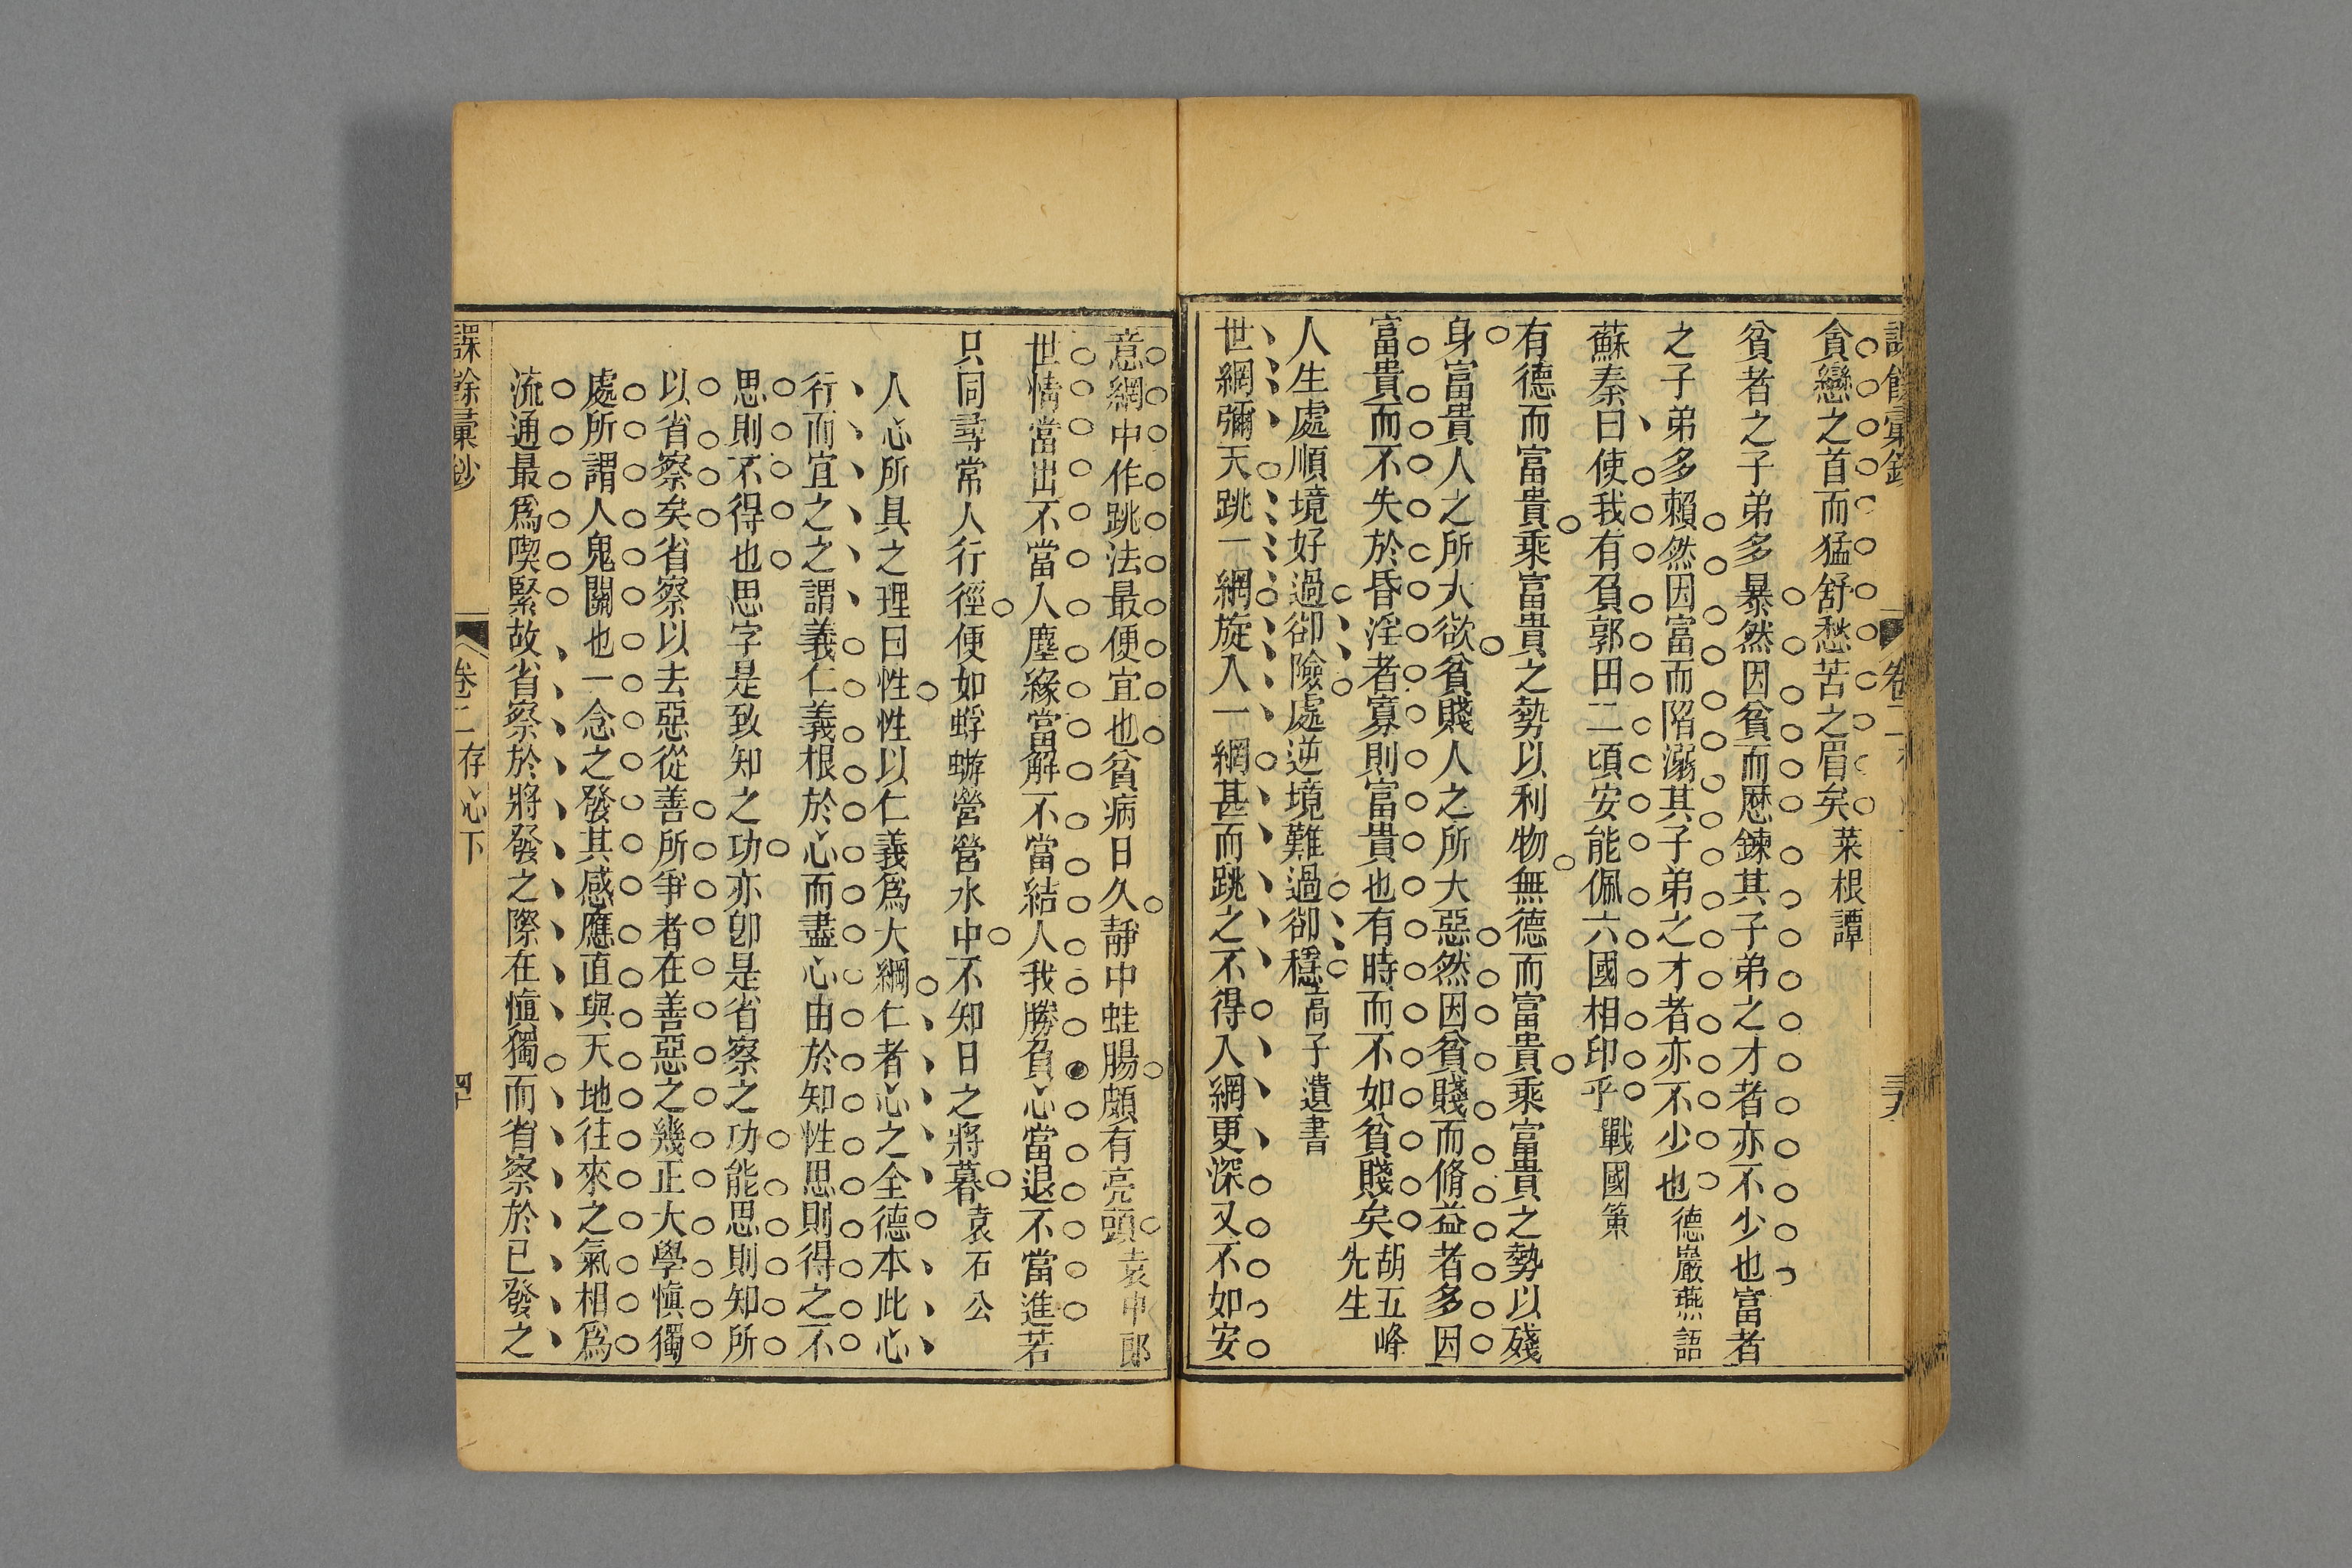 貪戀之首而猛舒愁苦之眉矣菜根譚
貧者之子弟多暴然因貧而歴鍊其子弟之才者亦不少也富者
之子弟多賴然因富而陷溺其子弟之才者亦不少也德巖燕語
蘇秦曰使我有負郭田二頃安能佩六國相印乎戰國策
有德而富貴乘富貴之勢以利物無德而富貴乘富貴之勢以殘
身富貴人之所大欲貧賤人之所大惡然因貧賤而脩益者多因
富貴而不失於昏淫者寡則富貴也有時而不如貧賤矣胡五峰先生
人生處順境好過卻險處逆境難過卻穩高子遺書
世網彌天跳一網旋入一網甚而跳之不得入網更深又不如安
意網中作跳法最便宜也貧病日久靜中蛙腸頗有亮頭袁中郎
世情當出不當人塵緣當解不當結人我勝負心當退不當進若
只同尋常人行徑便如蜉蝣營營水中不知日之將暮袁石公
人心所具之理曰性性以仁義爲大綱仁者心之全德本此心
行而宜之之謂義仁義根於心而盡心由於知性思則得之不
思則不得也思字是致知之功亦卽是省察之功能思則知所
以省察矣省察以去惡從善所爭者在善惡之幾正大學愼獨
處所謂人鬼關也一念之發其感應直與天地往來之氣相爲
流通最爲喫緊故省察於將發之際在愼獨而省察於已發之
課餘彙鈔
卷二存心下
四十